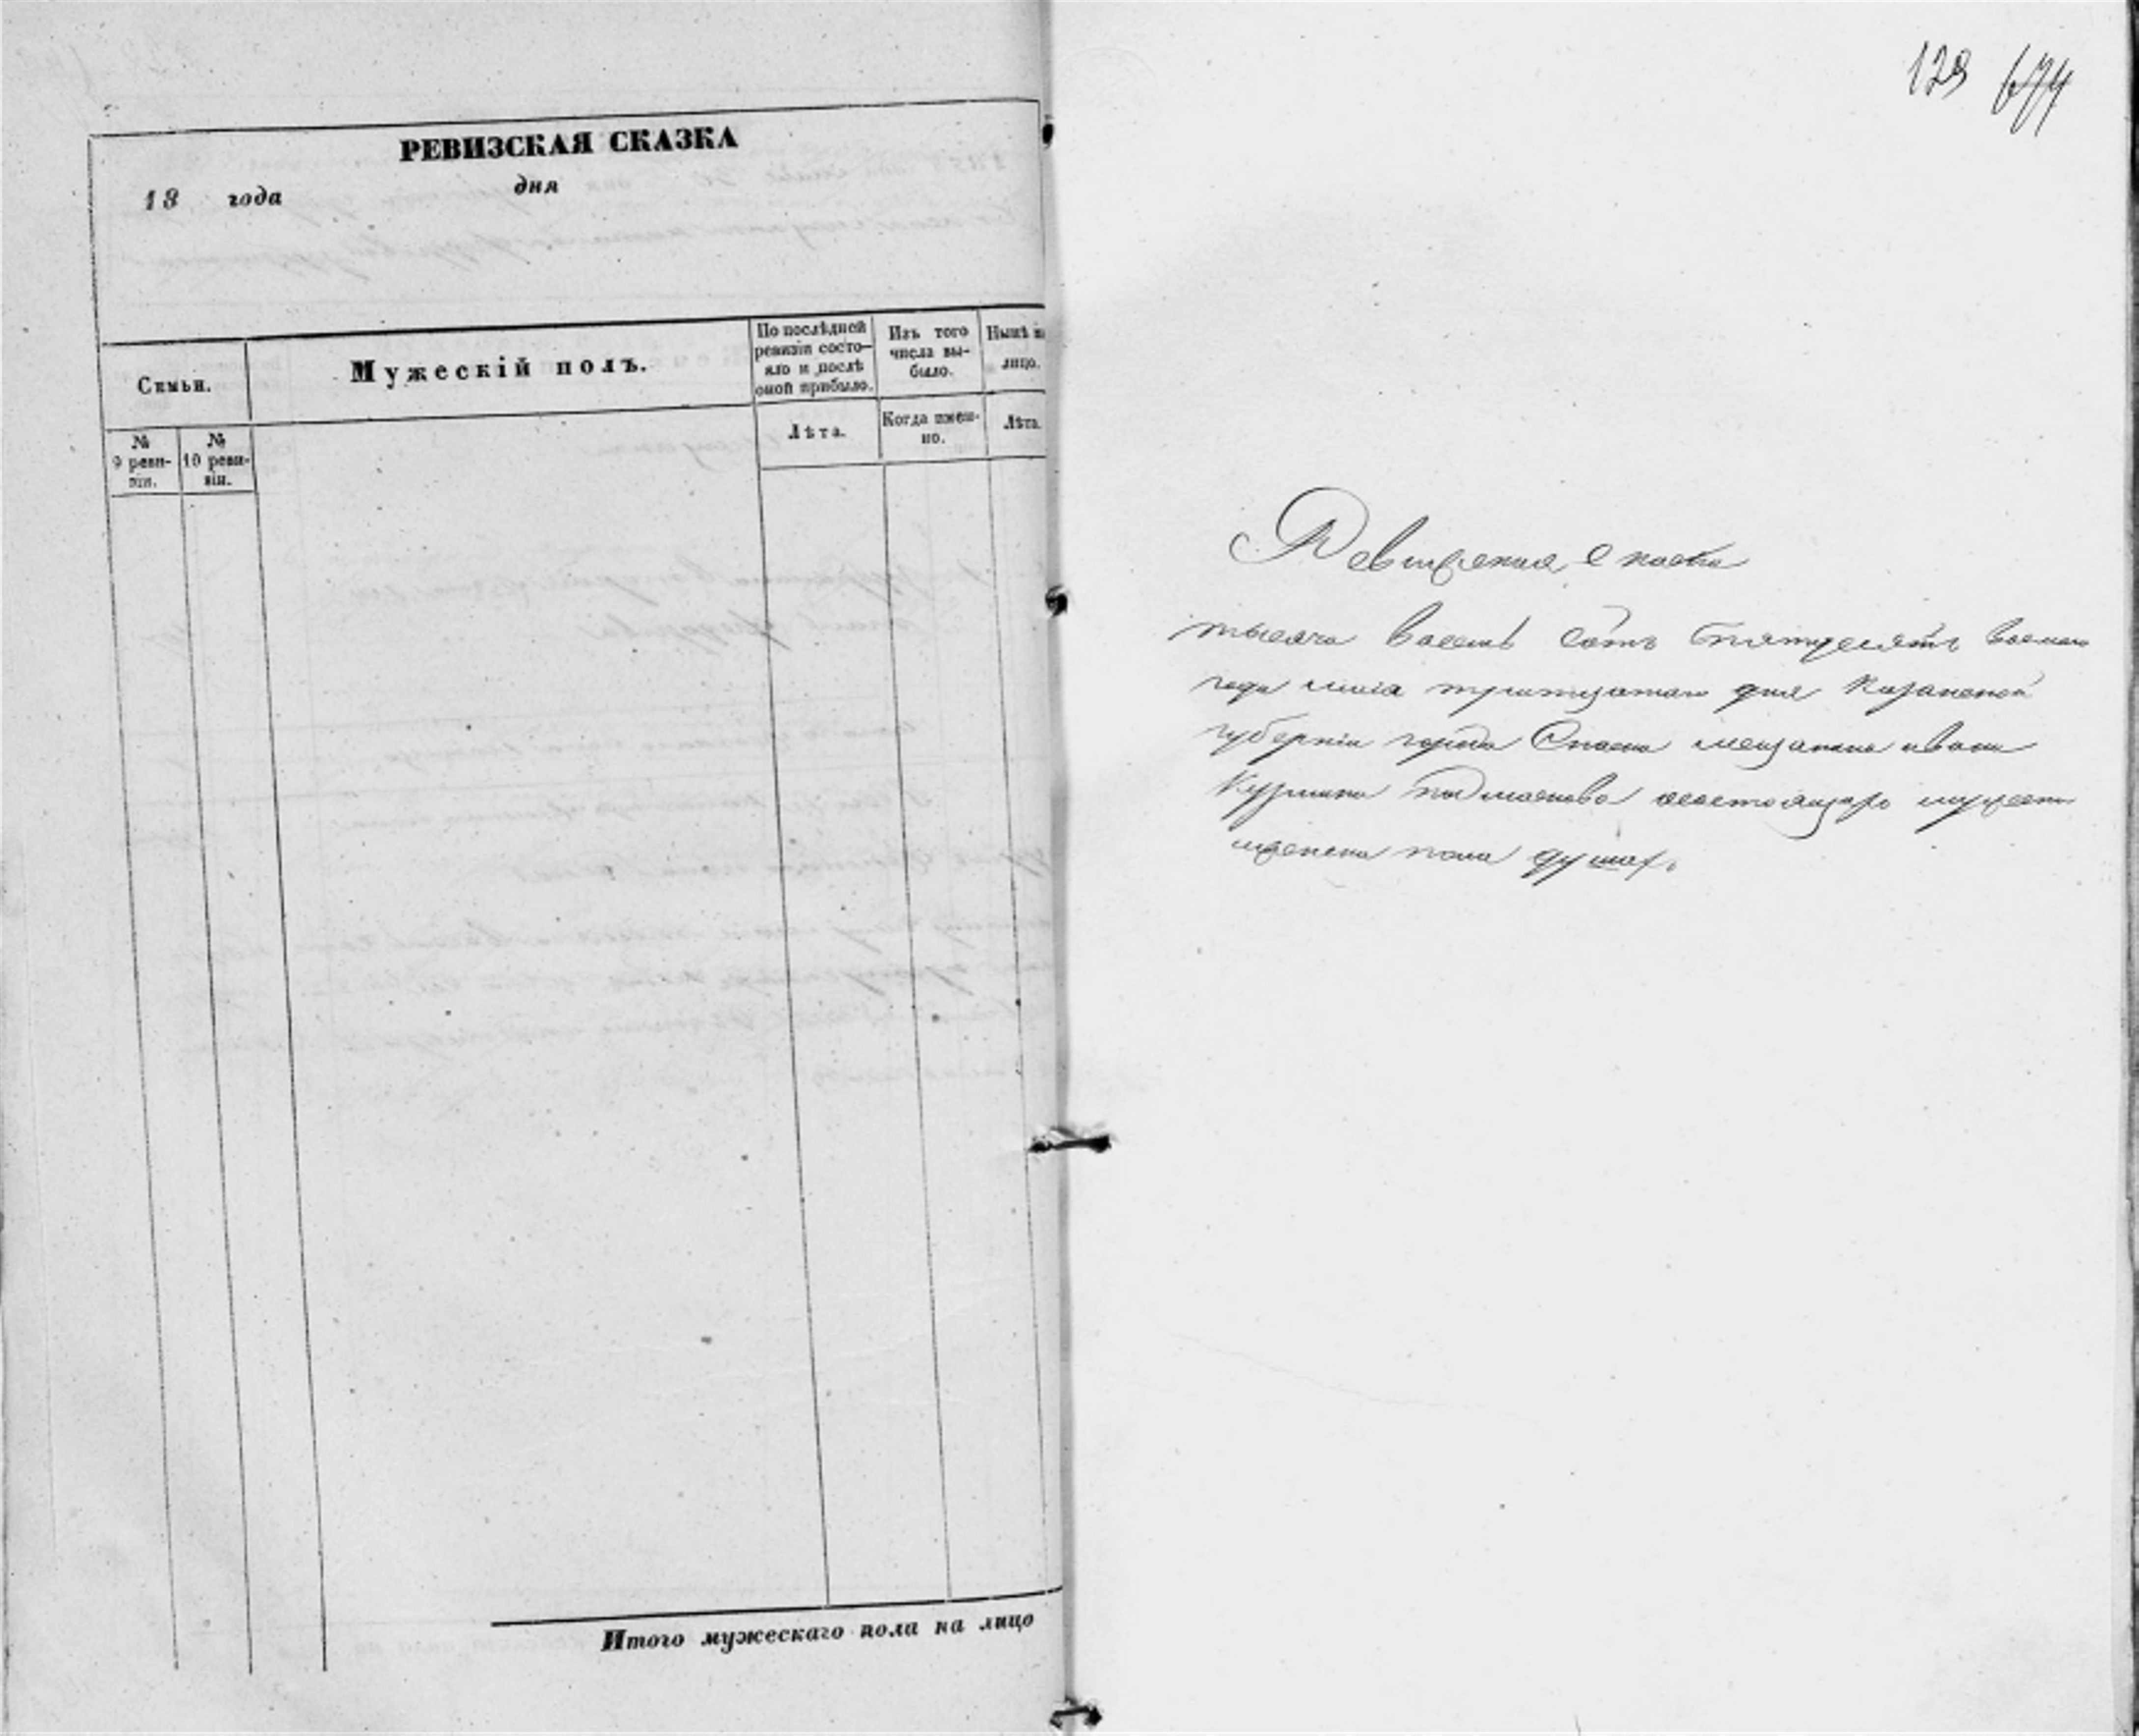 РЕВИЗСКАЯ СКАЗКА
18 года дня
Семьи.
Мужескій полъ.
По послѣдней
ревизіи состо-
яло и послѣ
оной прибыло.
Изъ того
числа вы-
было.
Нынѣ на
лицо.
Лѣта.
Когда имен-
но.
Лѣта.
№
9 реви-
зіи.
№
10 реви-
зіи.
Итого мужескаго пола на лицо
129 674
Ревизская Сказка
тысяча восемь сотъ пятидесятъ восмаго
года маія тритцатаго дня Казанской
губерніи города Спаска мещанина ивана
Кузмина о состоящихъ мужеска
женска пола душахъ